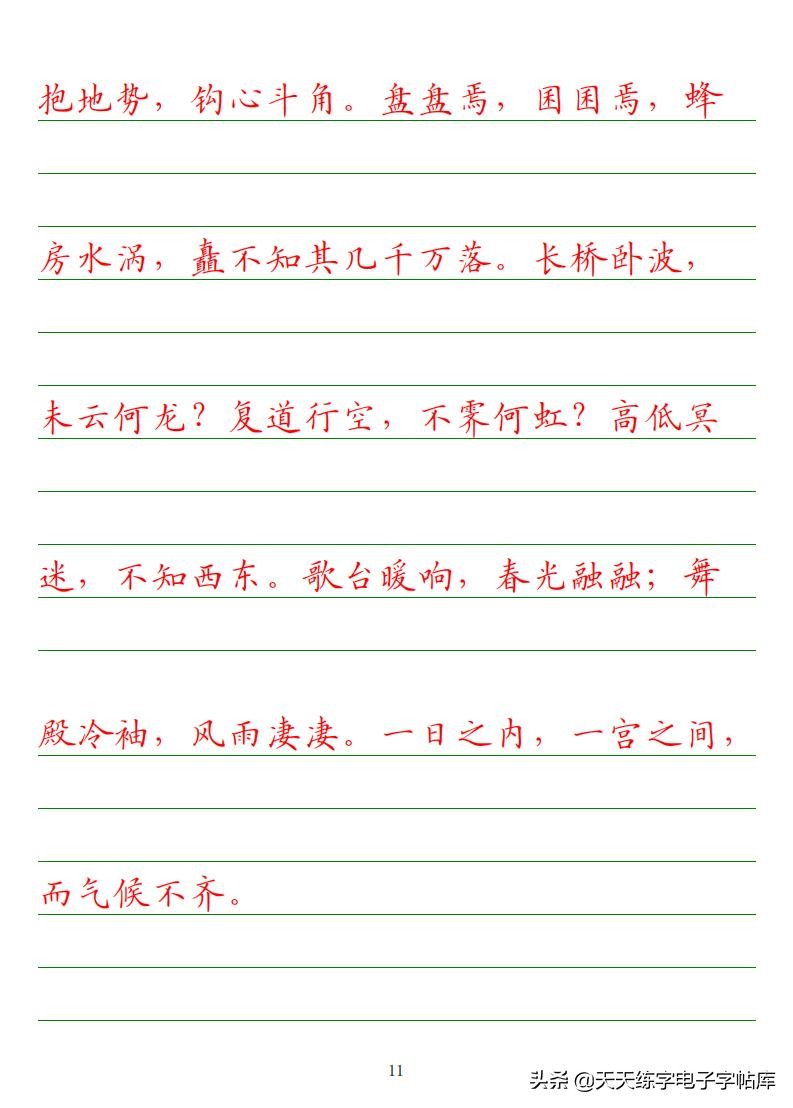 抱地势，钩心斗角。盘盘焉，囷囷焉，蜂
房水涡，矗不知其几千万落。长桥卧波，
未云何龙？复道行空，不霁何虹？高低冥
迷，不知西东。歌台暖响，春光融融；舞
殿冷袖，风雨凄凄。一日之内，一宫之间，
而气候不齐。
11
头条 @天天练字电子字帖库